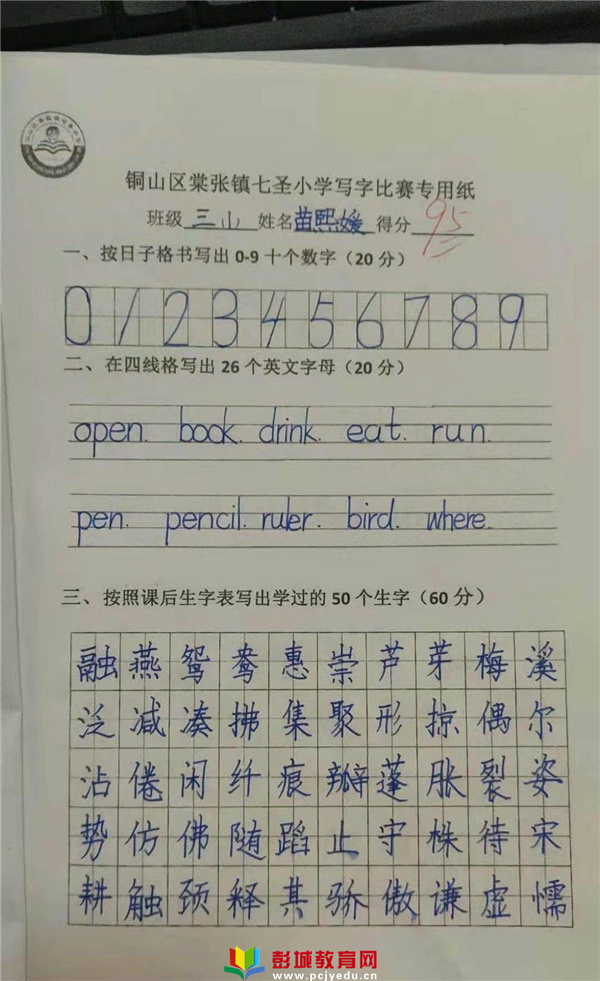 铜山区棠张镇七圣小学写字比赛专用纸
班级 三小 姓名 苗熙媛 得分 95
一、按日子格书写出 0-9 十个数字（20 分）
0 1 2 3 4 5 6 7 8 9
二、在四线格写出 26 个英文字母（20 分）
open. book. drink. eat. run.
pen. pencil. ruler. bird. where.
三、按照课后生字表写出学过的 50 个生字（60 分）
融 燕 鸳 鸯 惠 崇 芦 芽 梅 溪
泛 减 凑 拂 集 聚 形 掠 偶 尔
沾 倦 闲 纤 痕 瓣 蓬 胀 裂 姿
势 仿 佛 随 蹈 止 守 株 待 宋
耕 触 颈 释 其 骄 傲 谦 虚 懦
彭城教育网
www.pcjyedu.cn